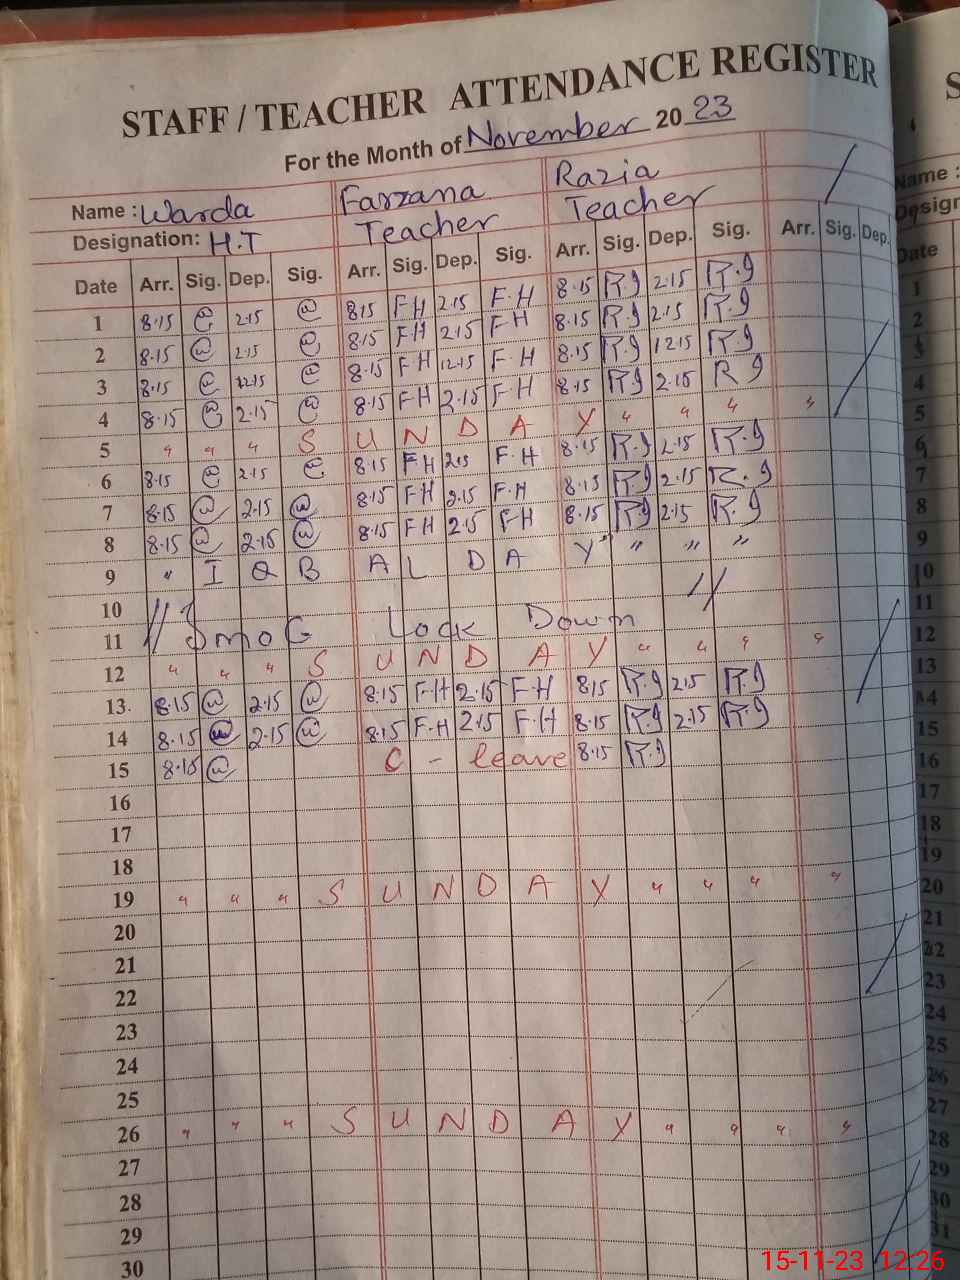 STAFF / TEACHER ATTENDANCE REGISTER
For the Month of November 2023
Name : Warda Farzana Razia
Designation: H.T Teacher Teacher
Date Arr. Sig. Dep. Sig. Arr. Sig. Dep. Sig. Arr. Sig. Dep. Sig. Arr. Sig. Dep.
1 8.15 2.15 8.15 F H 2.15 F.H 8.15 2.15
2 8.15 2.15 8.15 FH 2.15 FH 8.15 2.15
3 8.15 12.15 8.15 FH 12.15 F.H 8.15 12.15
4 8.15 2.15 8.15 FH 2.15 F.H 8.15 2.15
5 " " " S U N D A Y " " " "
6 8.15 2.15 8.15 FH 2.15 F.H 8.15 2.15
7 8.15 2.15 8.15 FH 2.15 F.H 8.15 2.15
8 8.15 2.15 8.15 FH 2.15 FH 8.15 2.15
9 " I Q B A L D A Y " " " "
10
11 SmoG Lock Down
12 " " " S U N D A Y " " " "
13. 8.15 2.15 8.15 F.H 2.15 F.H 8.15 2.15
14 8.15 2.15 8.15 F.H 2.15 F.H 8.15 2.15
15 8.15 C - leave 8.15
16
17
18
19 " " " S U N D A Y " " " "
20
21
22
23
24
25
26 " " " S U N D A Y " " " "
27
28
29
30
S
Name :
Design
Date
1
2
3
4
5
6
7
8
9
10
11
12
13
14
15
16
17
18
19
20
21
22
23
24
25
26
27
28
29
30
31
15-11-23 12:26